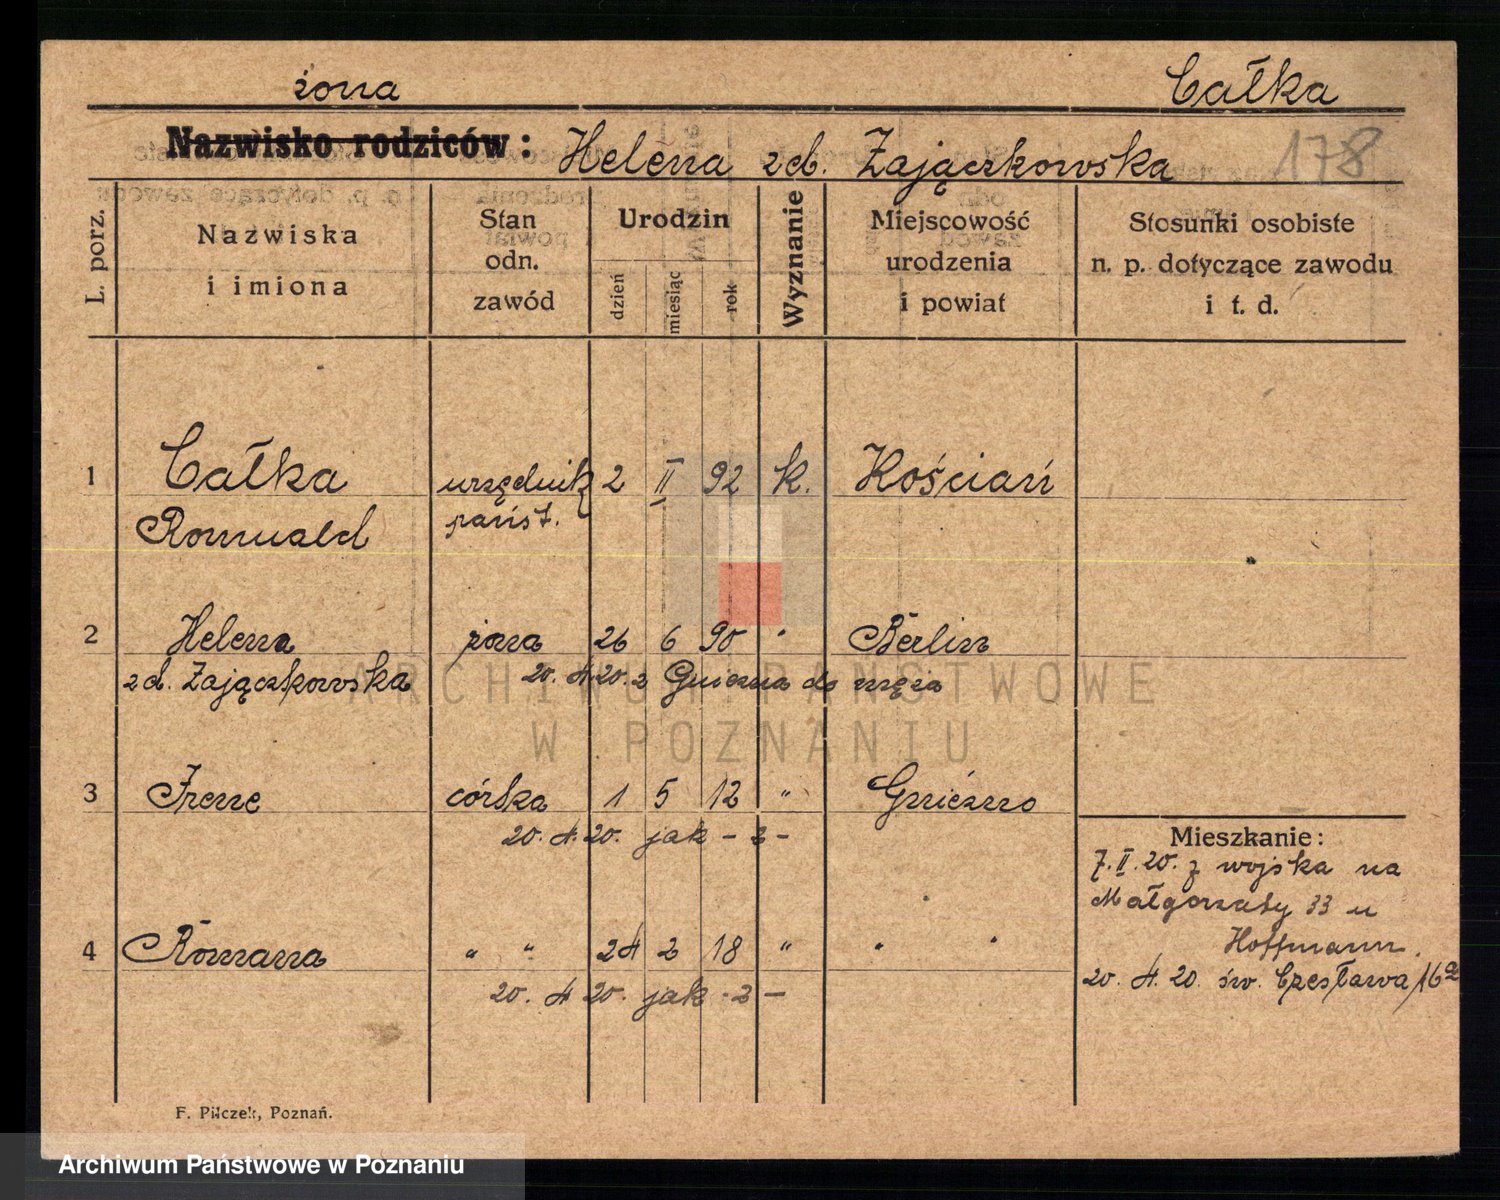 żona Całka
Nazwisko rodziców: Helena zd. Zajączkowska 178
L. porz.
Nazwiska
i imiona
Stan
odn.
zawód
Urodzin
dzień miesiąc rok
Wyznanie
Miejscowość
urodzenia
i powiat
Stosunki osobiste
n. p. dotyczące zawodu
i t. d.
1 Całka urzędnik 2 II 92 k. Kościań
Romuald państ.
2 Helena żona 26 6 90 " Berlin
zd. Zajączkowska 20. 4. 20. z Gniezna do męża
3 Irene córka 1 5 12 " Gniezno
20. 4. 20. jak - 2 -
4 Romana " " 24 2 18 " " "
20. 4. 20. jak - 2 -
Mieszkanie:
7. II. 20. z wojska na
Małgorzaty 33 u
Hoffmann.
20. 4. 20. św. Czesława 16a
F. Pilczek, Poznań.
ARCHIWUM PAŃSTWOWE
W POZNANIU
Archiwum Państwowe w Poznaniu